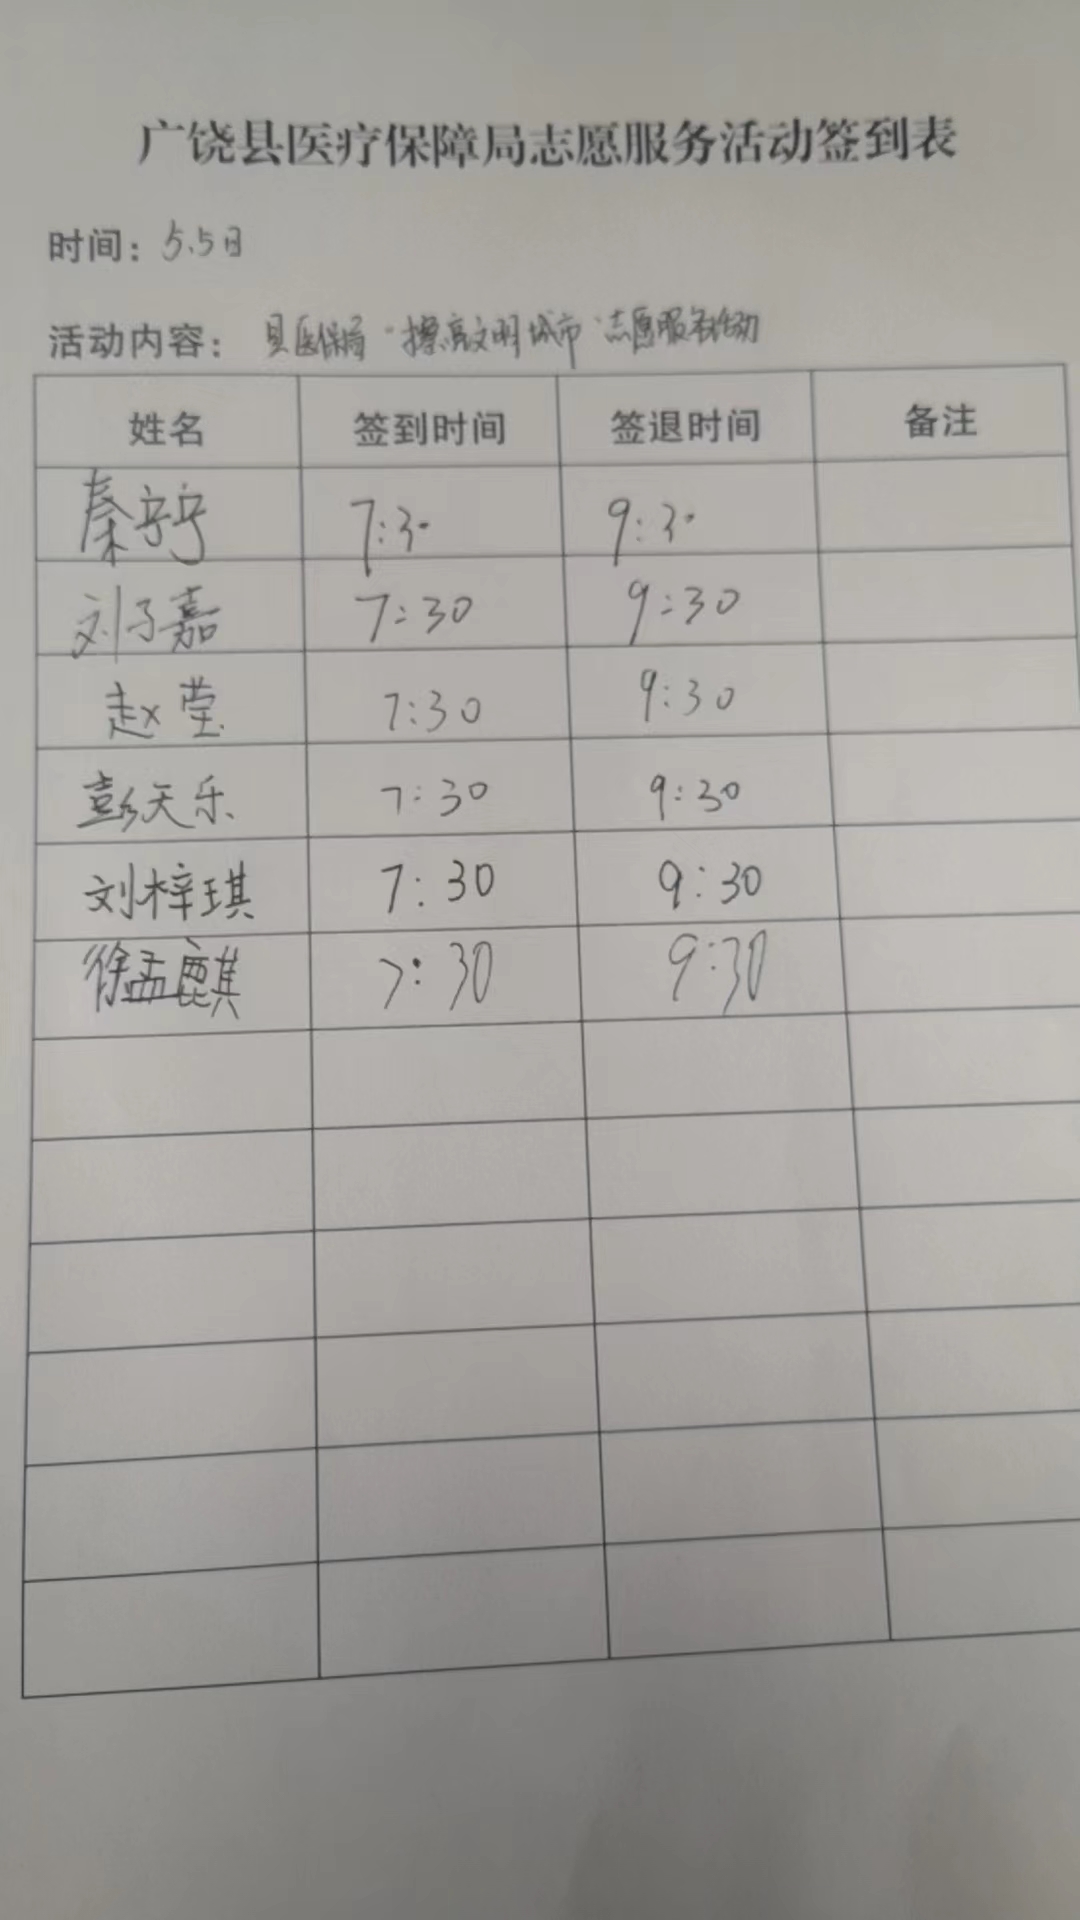 广饶县医疗保障局志愿服务活动签到表
时间：5.5日
活动内容：县医保局“擦亮文明城市”志愿服务活动
姓名 签到时间 签退时间 备注
秦宁宁 7:30 9:30
刘子嘉 7:30 9:30
赵莹 7:30 9:30
彭天乐 7:30 9:30
刘梓琪 7:30 9:30
徐孟麒 7:30 9:30